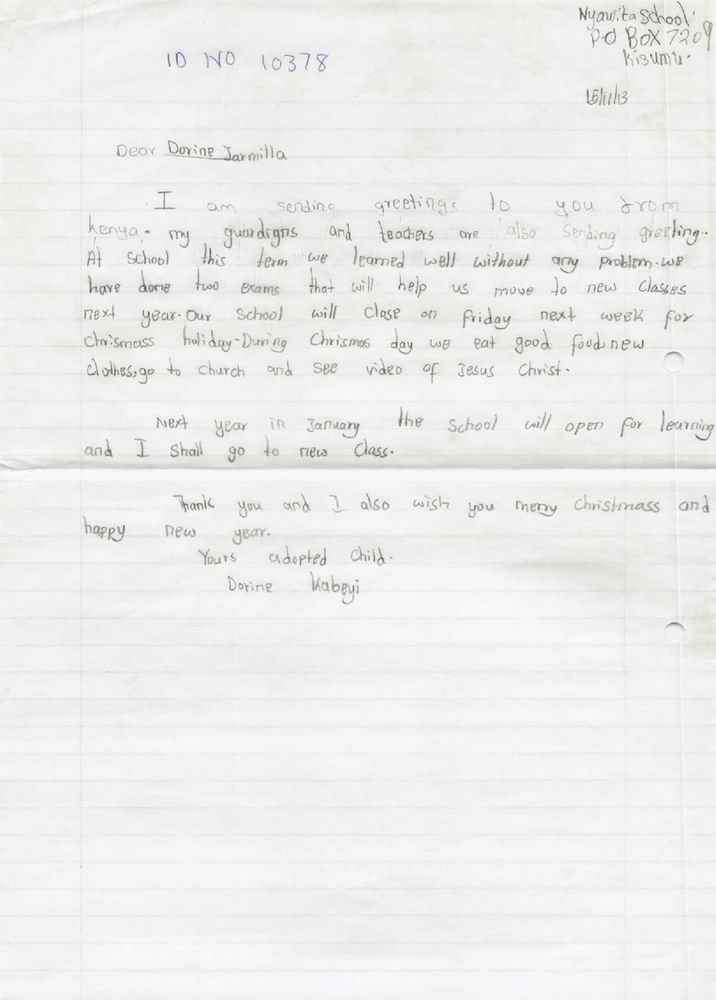 Nyawita School.
P.O BOX 7209
Kisumu.
ID NO 10378
15/11/13
Dear Dorine Jarmilla
I am sending greetings to you from
kenya. my guardigns and teachers are also sending greeting..
At school this term we learned well without any problem. we
have done two exams that will help us move to new classes
next year. Our school will close on friday next week for
Chrismass holiday. During Chrismas day we eat good food, new
clothes, go to church and see video of Jesus Christ.
Next year in January the school will open for learning
and I shall go to new class.
Thank you and I also wish you merry Christmass and
happy new year.
Yours adopted child.
Dorine Kabeyi